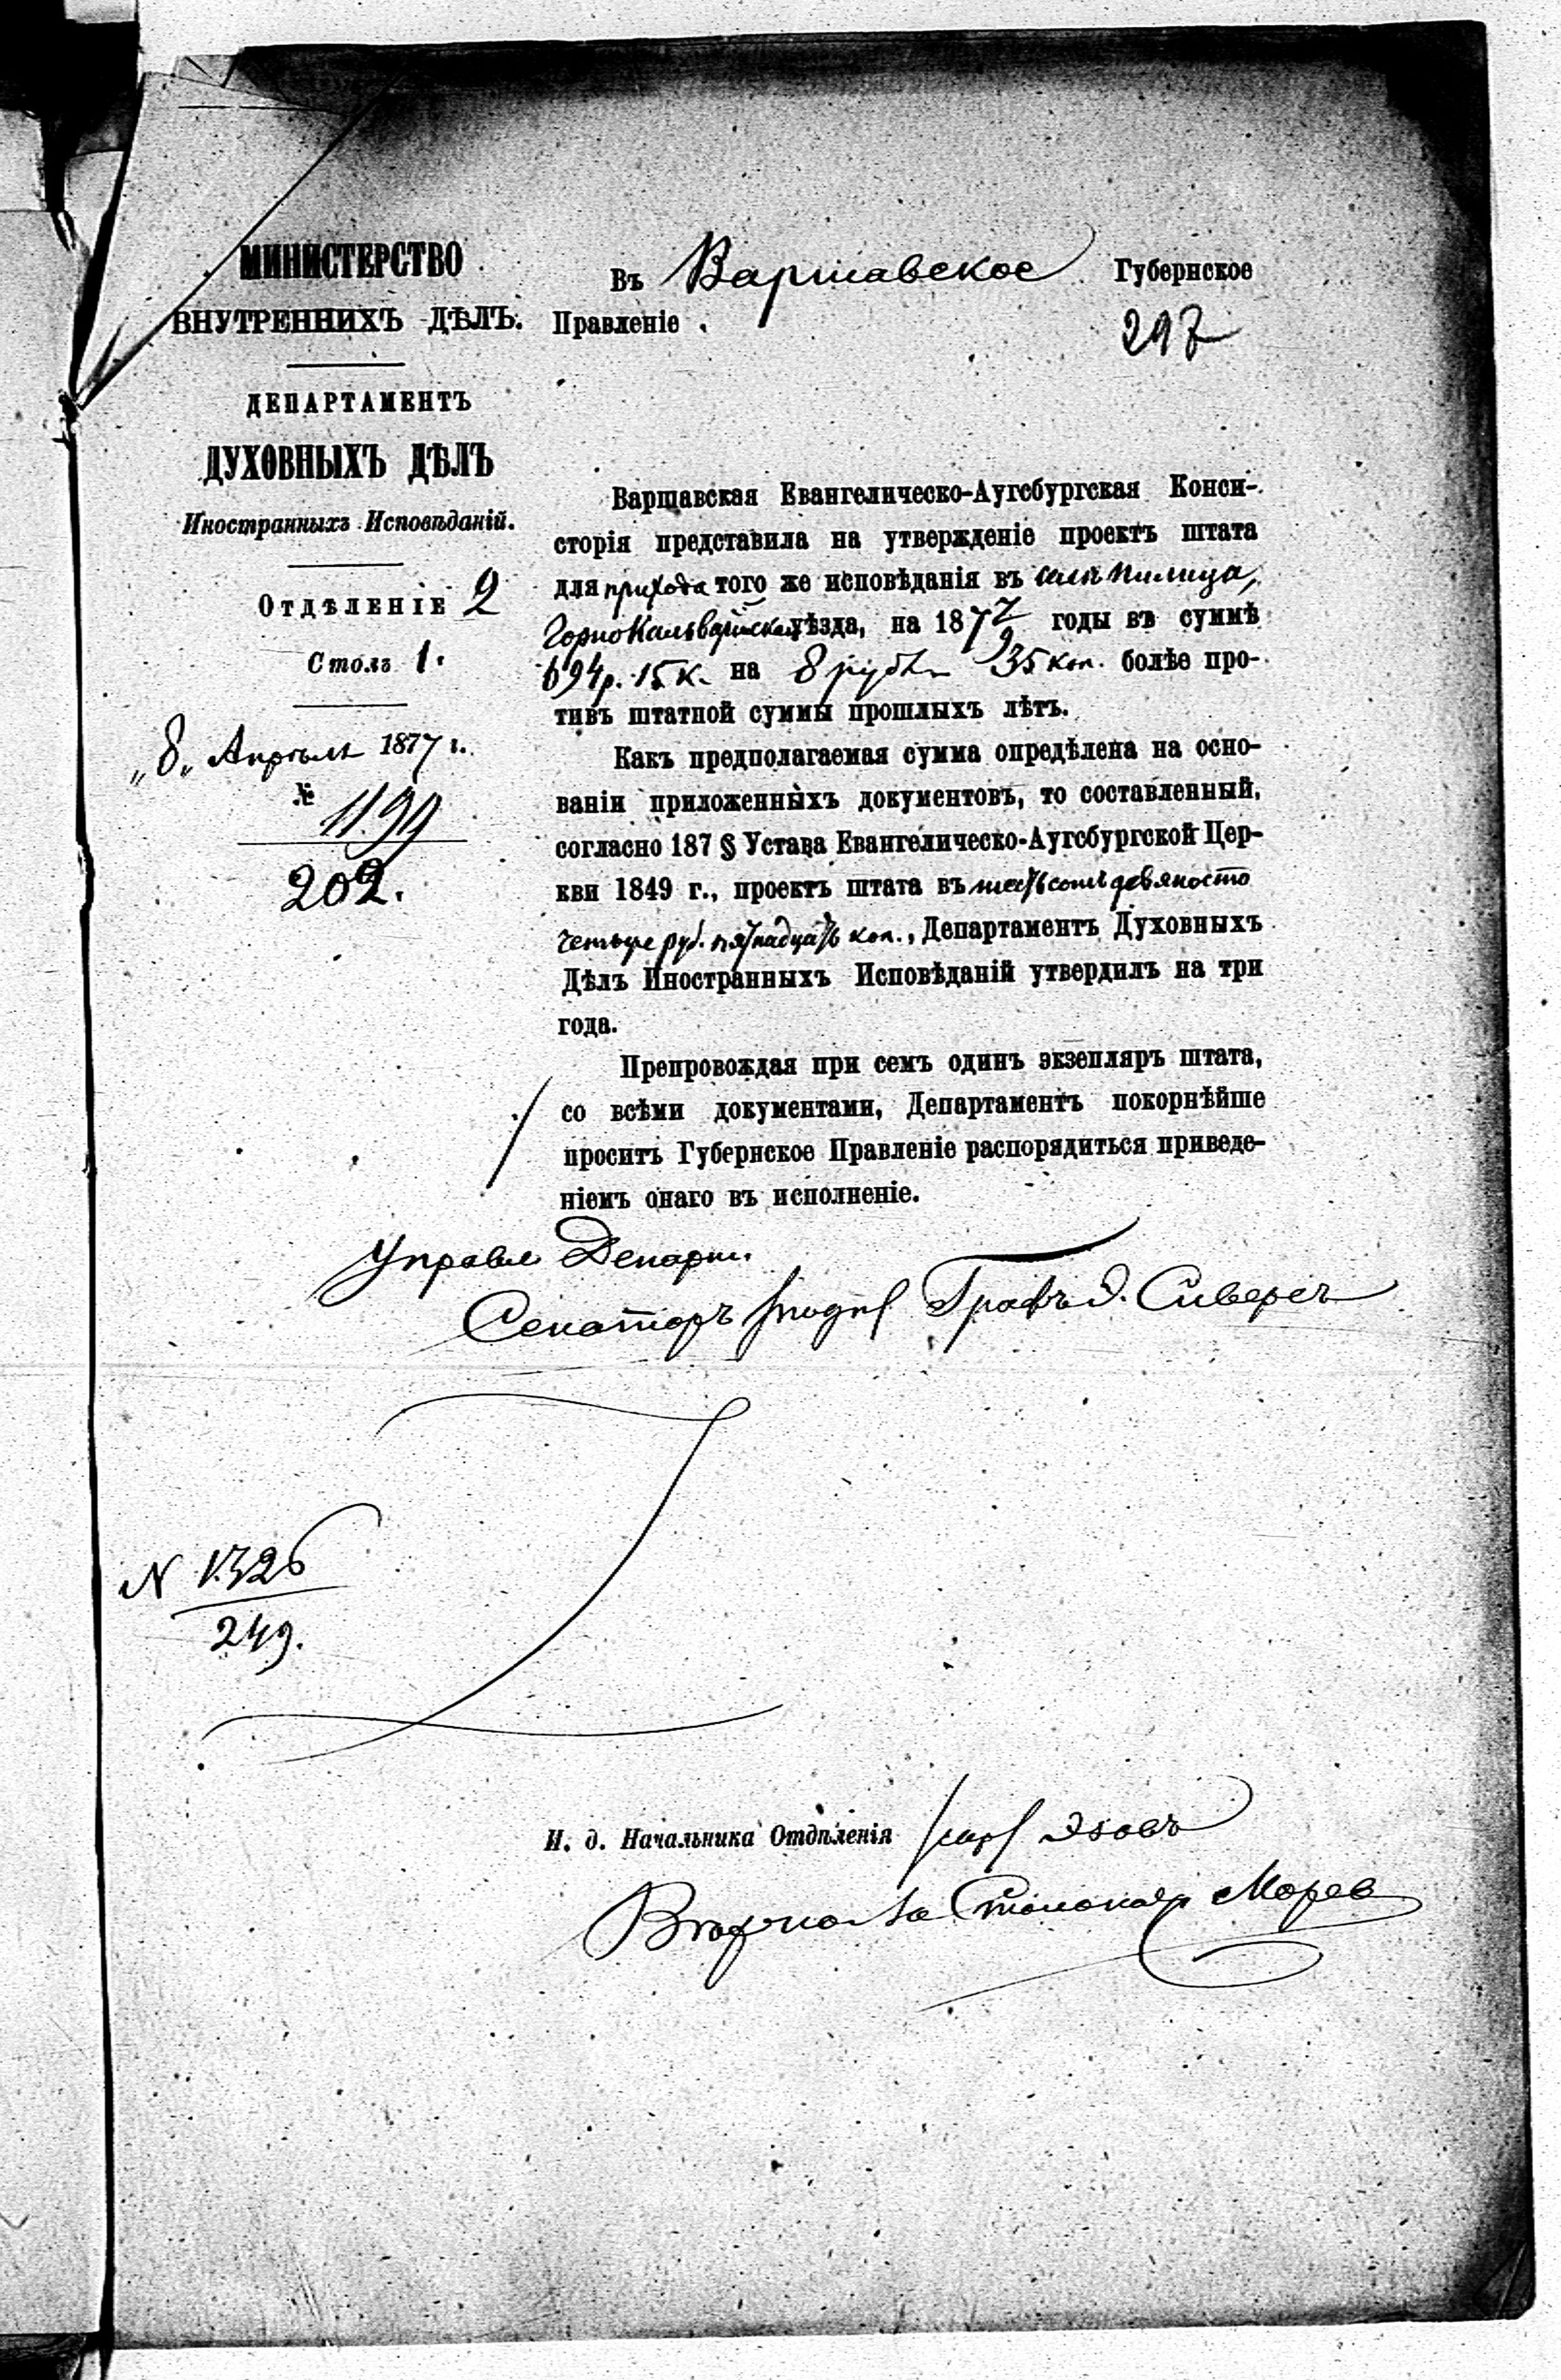 МИНИСТЕРСТВО
ВНУТРЕННИХЪ ДѢЛЪ.
ДЕПАРТАМЕНТЪ
ДУХОВНЫХЪ ДѢЛЪ
Иностранныхъ Исповѣданій.
Отдѣленіе 2
Столъ 1.
„8„ Апрѣля 1877 г.
№ 1199
202.
Въ Варшавское Губернское
Правленіе.
297
Варшавская Евангелическо-Аугсбургская Конси-
сторія представила на утвержденіе проектъ штата
для прихода того же исповѣданія въ селѣ Пилица,
Горнокальварійскаго уѣзда, на 187 7/9 годы въ суммѣ
694 р. 15 к. на 8 рубл. 35 коп. болѣе про-
тивъ штатной суммы прошлыхъ лѣтъ.
Какъ предполагаемая сумма опредѣлена на осно-
ваніи приложенныхъ документовъ, то составленный,
согласно 187 § Устава Евангелическо-Аугсбургской Цер-
кви 1849 г., проектъ штата въ шестьсотъ девяносто
четыре руб. пятнадцать коп., Департаментъ Духовныхъ
Дѣлъ Иностранныхъ Исповѣданій утвердилъ на три
года.
Препровождая при семъ одинъ экзепляръ штата,
со всѣми документами, Департаментъ покорнѣйше
проситъ Губернское Правленіе распорядиться приведе-
ніемъ онаго въ исполненіе.
Управл Департ.
Сенаторъ /подп/ Графъ Э. Сиверсъ
N 1326
249.
И. д. Начальника Отдѣленія
Столонач Морев